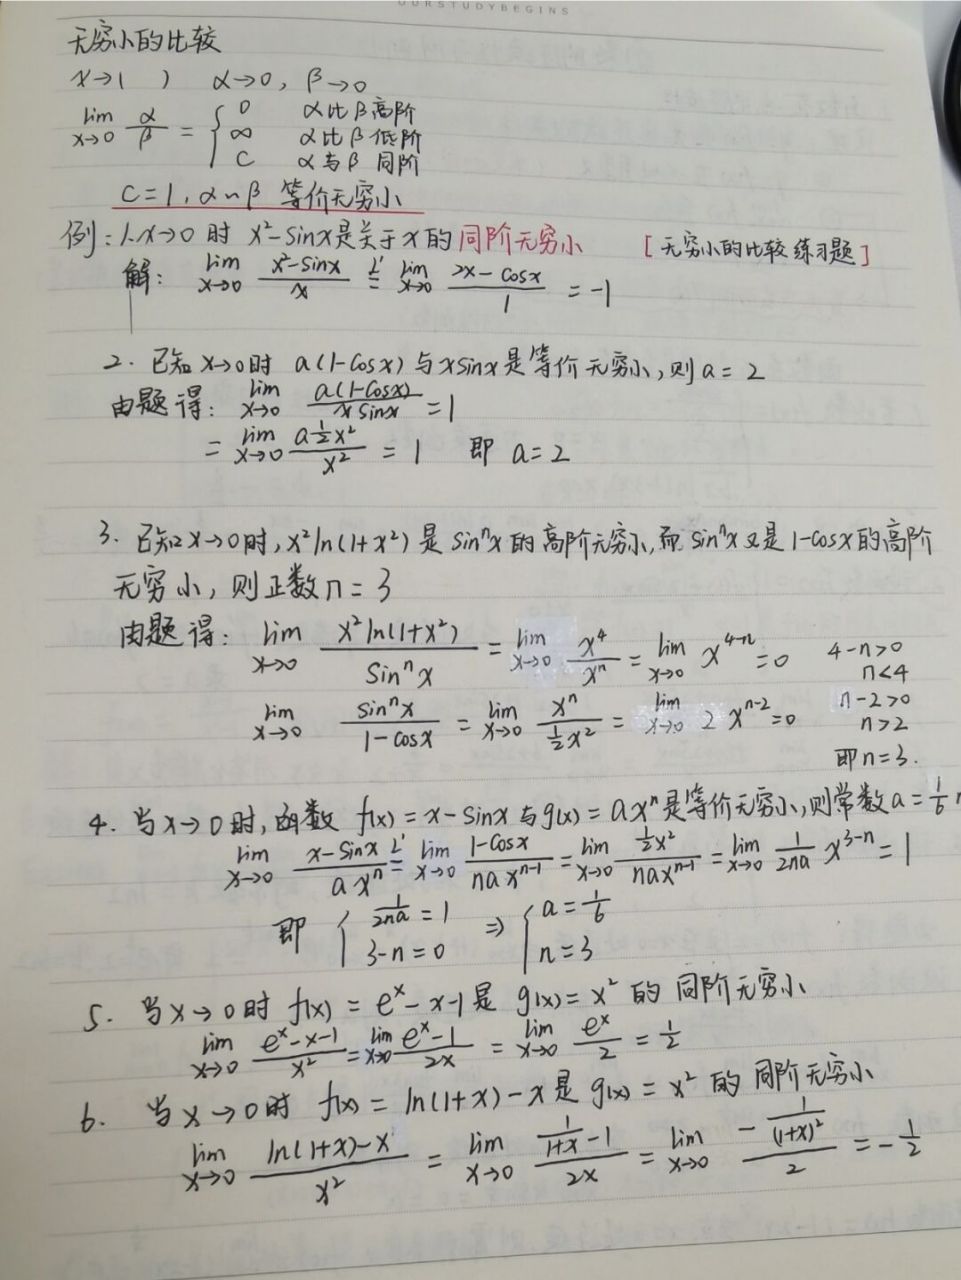 OURSTUDYBEGINS
无穷小的比较
x→1 ) α→0, β→0
lim x→0 α/β = { 0 α比β高阶
∞ α比β低阶
C α与β同阶
C=1, α~β 等价无穷小
例: 1. x→0 时 x²-sinx是关于x的同阶无穷小 [无穷小的比较练习题]
解: lim x→0 (x²-sinx)/x =L' lim x→0 (2x-cosx)/1 = -1
2. 已知 x→0时 a(1-cosx) 与xsinx是等价无穷小,则a=2
由题得: lim x→0 a(1-cosx)/(x sinx) = 1
= lim x→0 (a ½x²)/x² = 1 即 a=2
3. 已知x→0时, x²ln(1+x²) 是 sinⁿx 的高阶无穷小,而 sinⁿx 又是 1-cosx的高阶
无穷小, 则正数n=3
由题得: lim x→0 x²ln(1+x²)/sinⁿx = lim x→0 x⁴/xⁿ = lim x→0 x⁴⁻ⁿ = 0 4-n>0
n<4
lim x→0 sinⁿx/(1-cosx) = lim x→0 xⁿ/(½x²) = lim x→0 2xⁿ⁻² = 0 n-2>0
n>2
即n=3.
4. 当x→0时, 函数 f(x)=x-sinx与g(x)=axⁿ是等价无穷小,则常数a=1/6
lim x→0 (x-sinx)/(axⁿ) =L' lim x→0 (1-cosx)/(naxⁿ⁻¹) = lim x→0 (½x²)/(naxⁿ⁻¹) = lim x→0 1/(2na) x³⁻ⁿ = 1
即 { 1/(2na) = 1 ⇒ { a=1/6
3-n=0 n=3
5. 当x→0时 f(x)=eˣ-x-1是 g(x)=x² 的 同阶无穷小
lim x→0 (eˣ-x-1)/x² = lim x→0 (eˣ-1)/2x = lim x→0 eˣ/2 = ½
6. 当x→0时 f(x)=ln(1+x)-x是 g(x)=x² 的 同阶无穷小
lim x→0 (ln(1+x)-x)/x² = lim x→0 (1/(1+x)-1)/2x = lim x→0 (-1/(1+x)²)/2 = -½